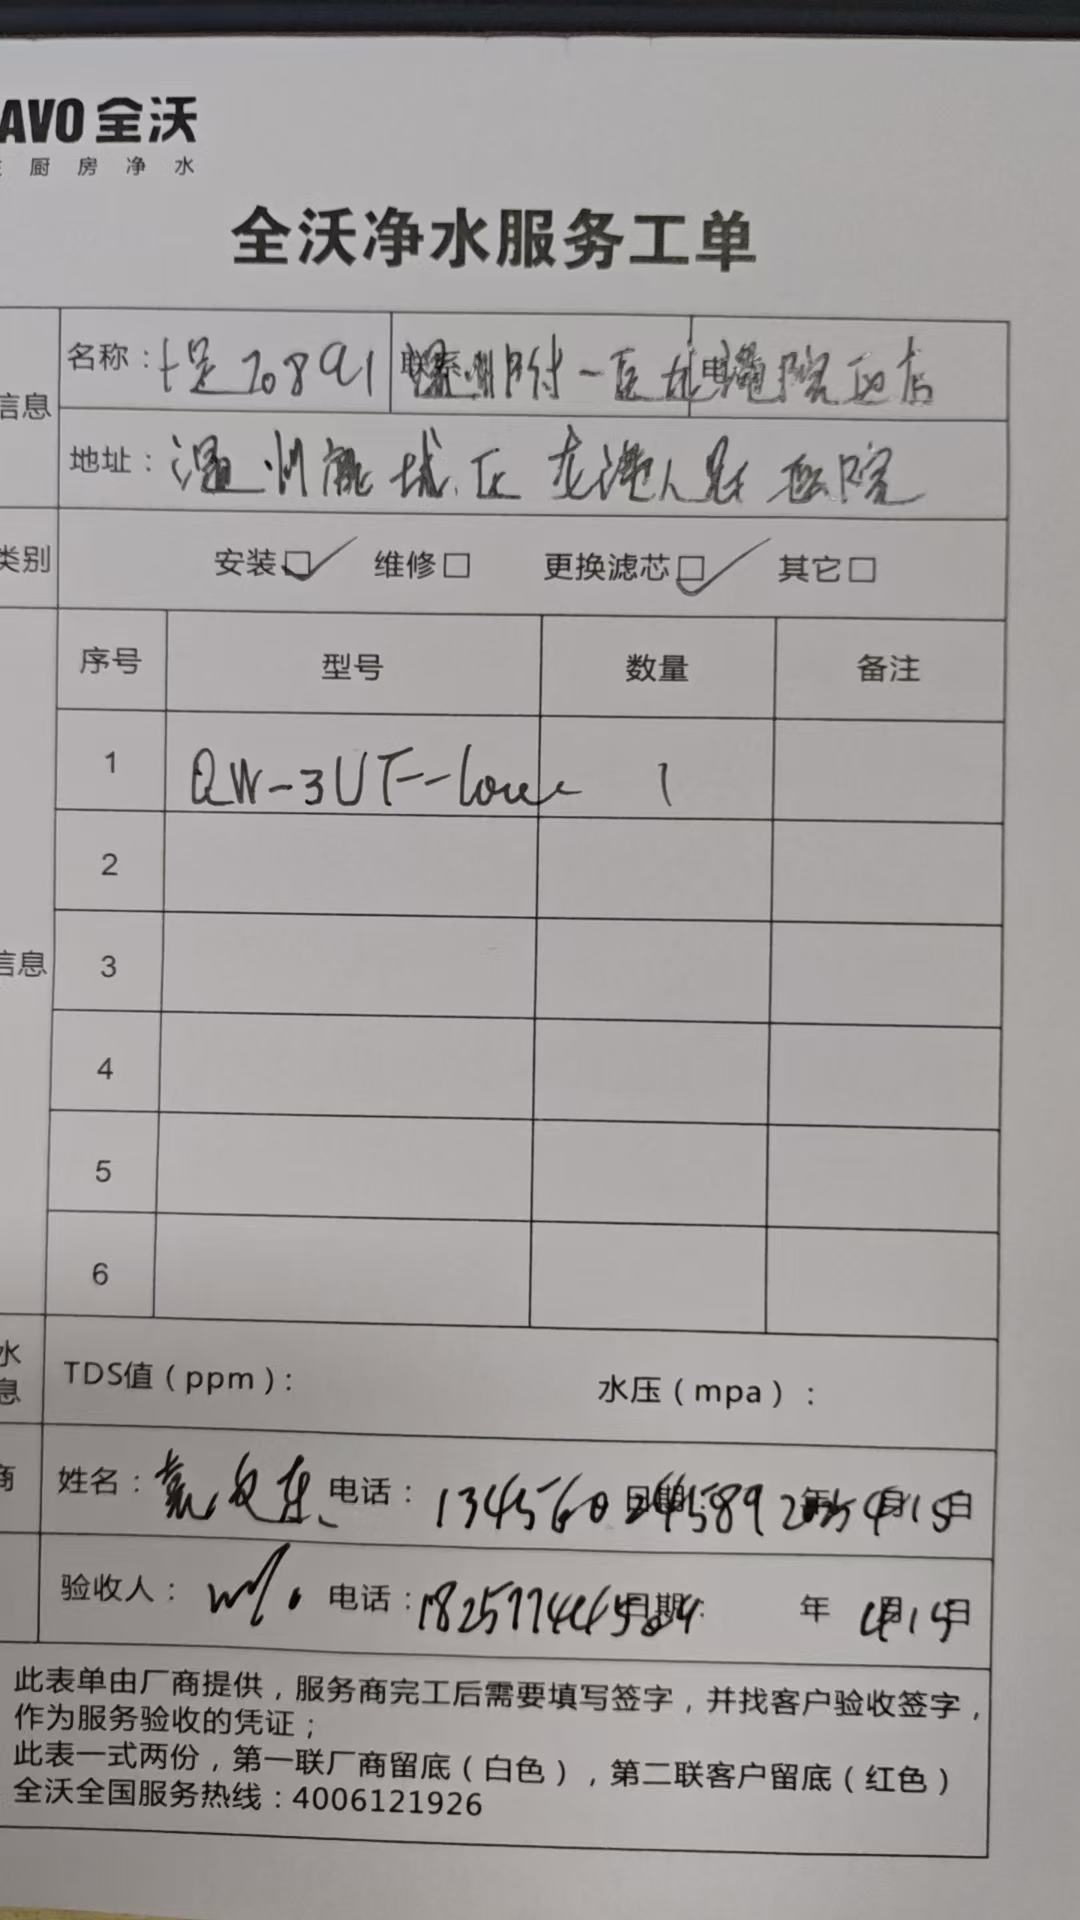 AVO 全沃
厨房净水
全沃净水服务工单
信息
名称：十足20891 温州附一医龙港院区店
地址：温州 城区龙港人民医院
类别 安装☑ 维修□ 更换滤芯☑ 其它□
序号 型号 数量 备注
1 QW-3UF- 1
2
信息 3
4
5
6
水 息 TDS值（ppm）： 水压（mpa）：
商 姓名： 电话： 日期： 年4月15日
验收人： 电话： 日期： 年4月15日
此表单由厂商提供，服务商完工后需要填写签字，并找客户验收签字，
作为服务验收的凭证；
此表一式两份，第一联厂商留底（白色），第二联客户留底（红色）
全沃全国服务热线：4006121926